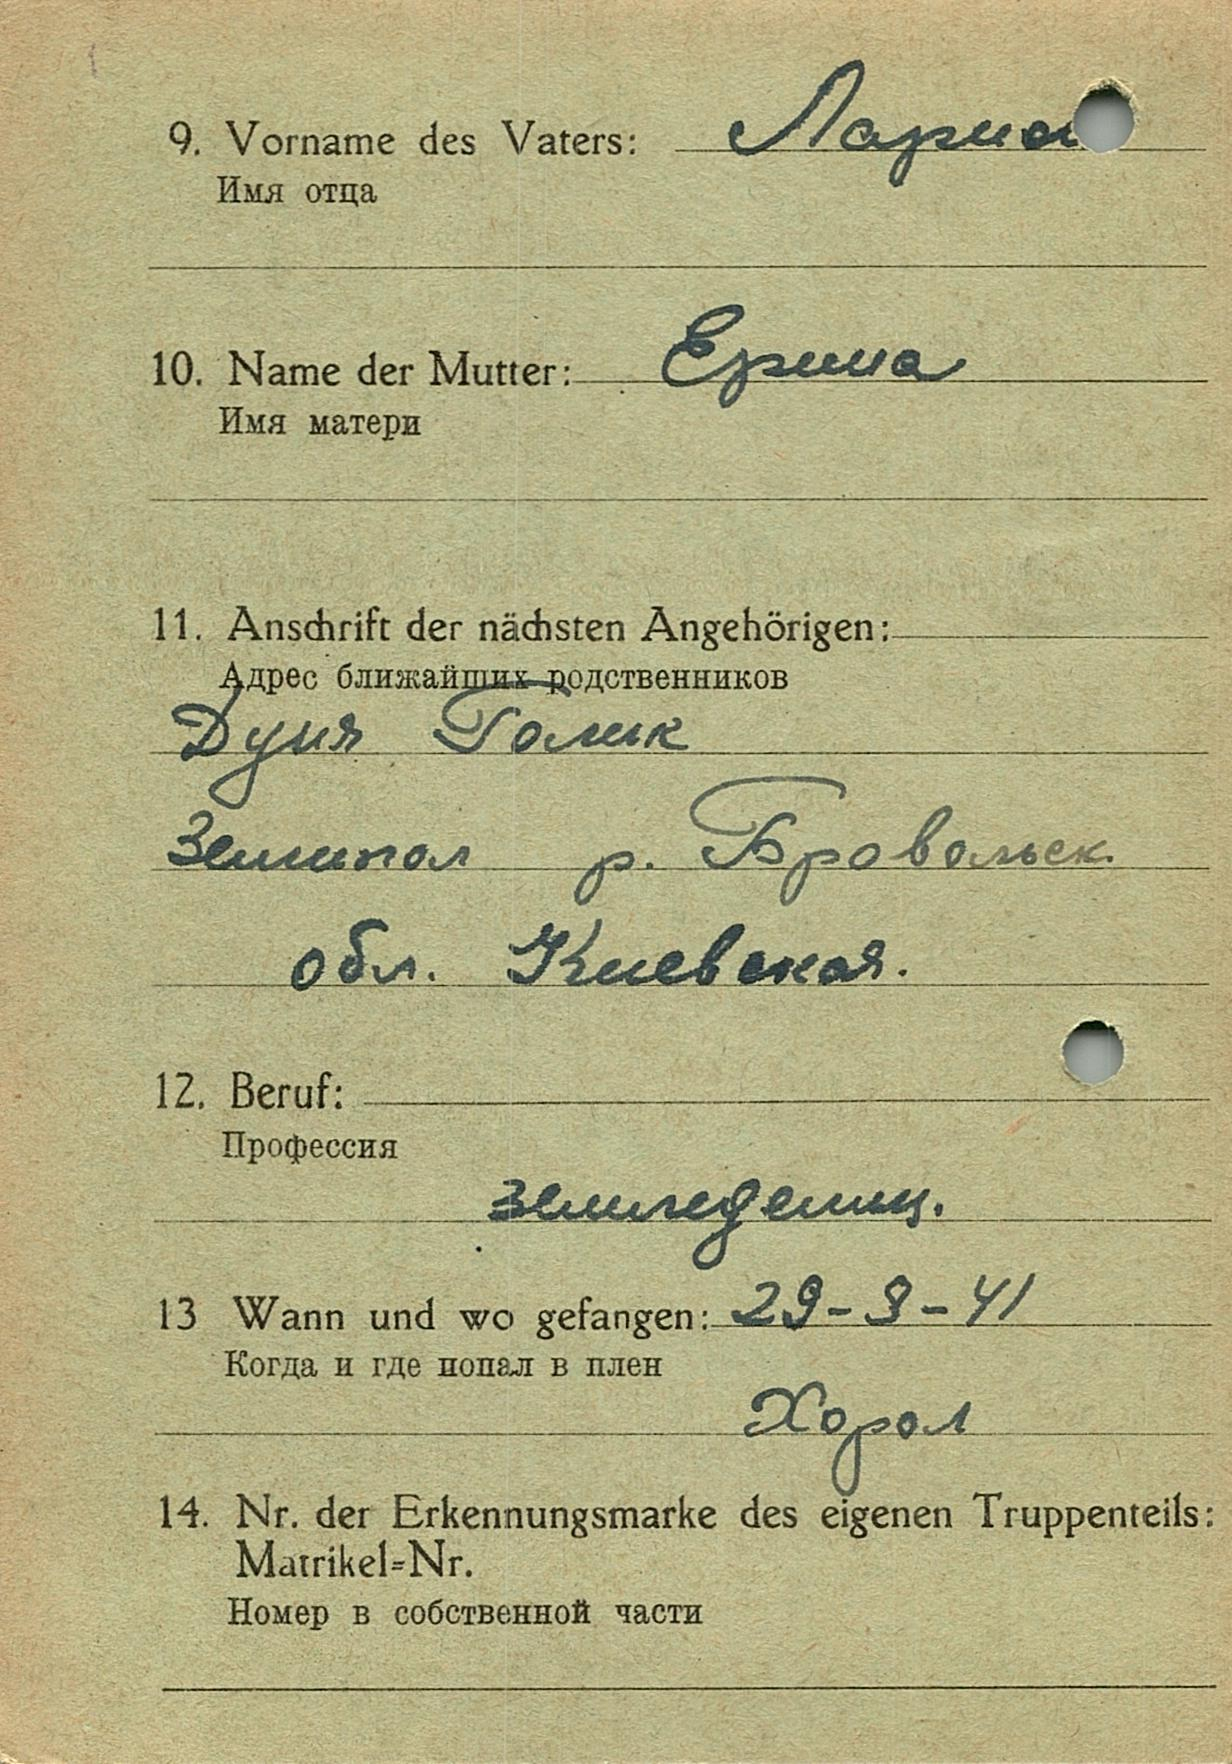 9. Vorname des Vaters: Ларио
Имя отца
10. Name der Mutter: Ерина
Имя матери
11. Anschrift der nächsten Angehörigen:
Адрес ближайших родственников
Дуня Голик
р. Бровольск.
обл. Киевская.
12. Beruf:
Профессия
земледелиц.
13 Wann und wo gefangen: 29-9-41
Когда и где попал в плен
Хорол
14. Nr. der Erkennungsmarke des eigenen Truppenteils:
Matrikel=Nr.
Номер в собственной части